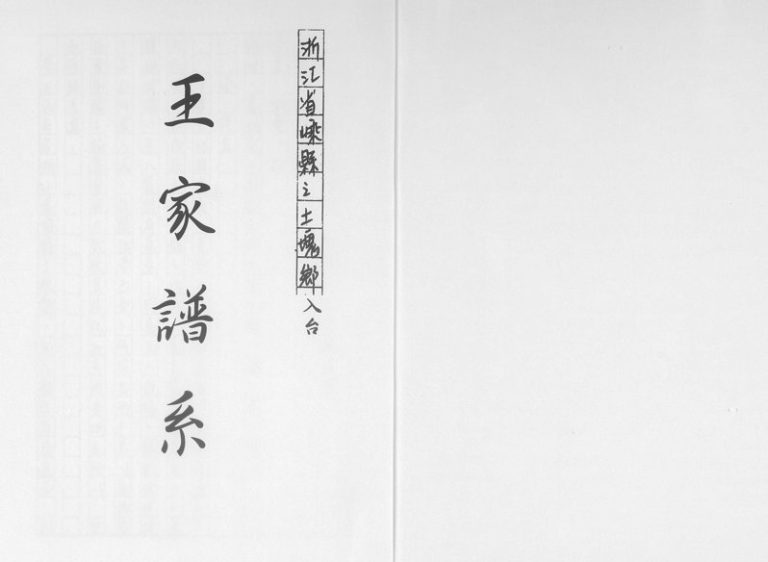 浙江省嵊縣之土壤鄉入台
王家譜系